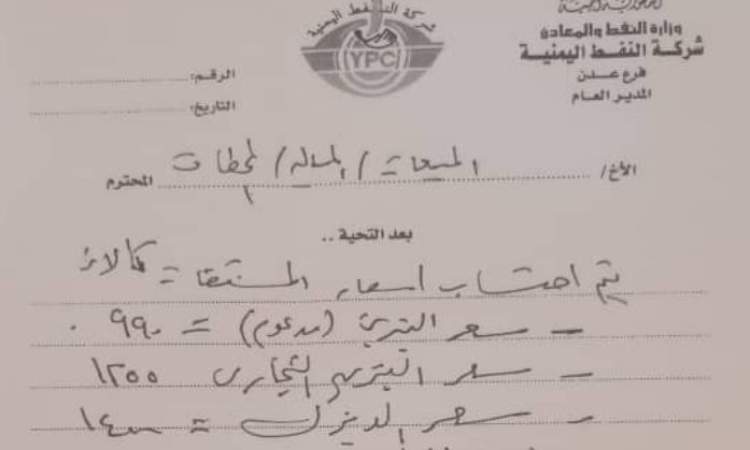 وزارة النفط والمعادن
شركة النفط اليمنية
فرع عدن
المدير العام
شركة النفط اليمنية
YPC
الرقم:
التاريخ:
الأخ/ المبيعات / المالية / المحطات المحترم
بعد التحية ..
يتم احتساب اسعار المشتقات كالآتي
- سعر البترول (مدعوم) = ٩٩٠
- سعر البترول التجاري ١٢٥٥
- سعر الديزل = ١٤٠٠